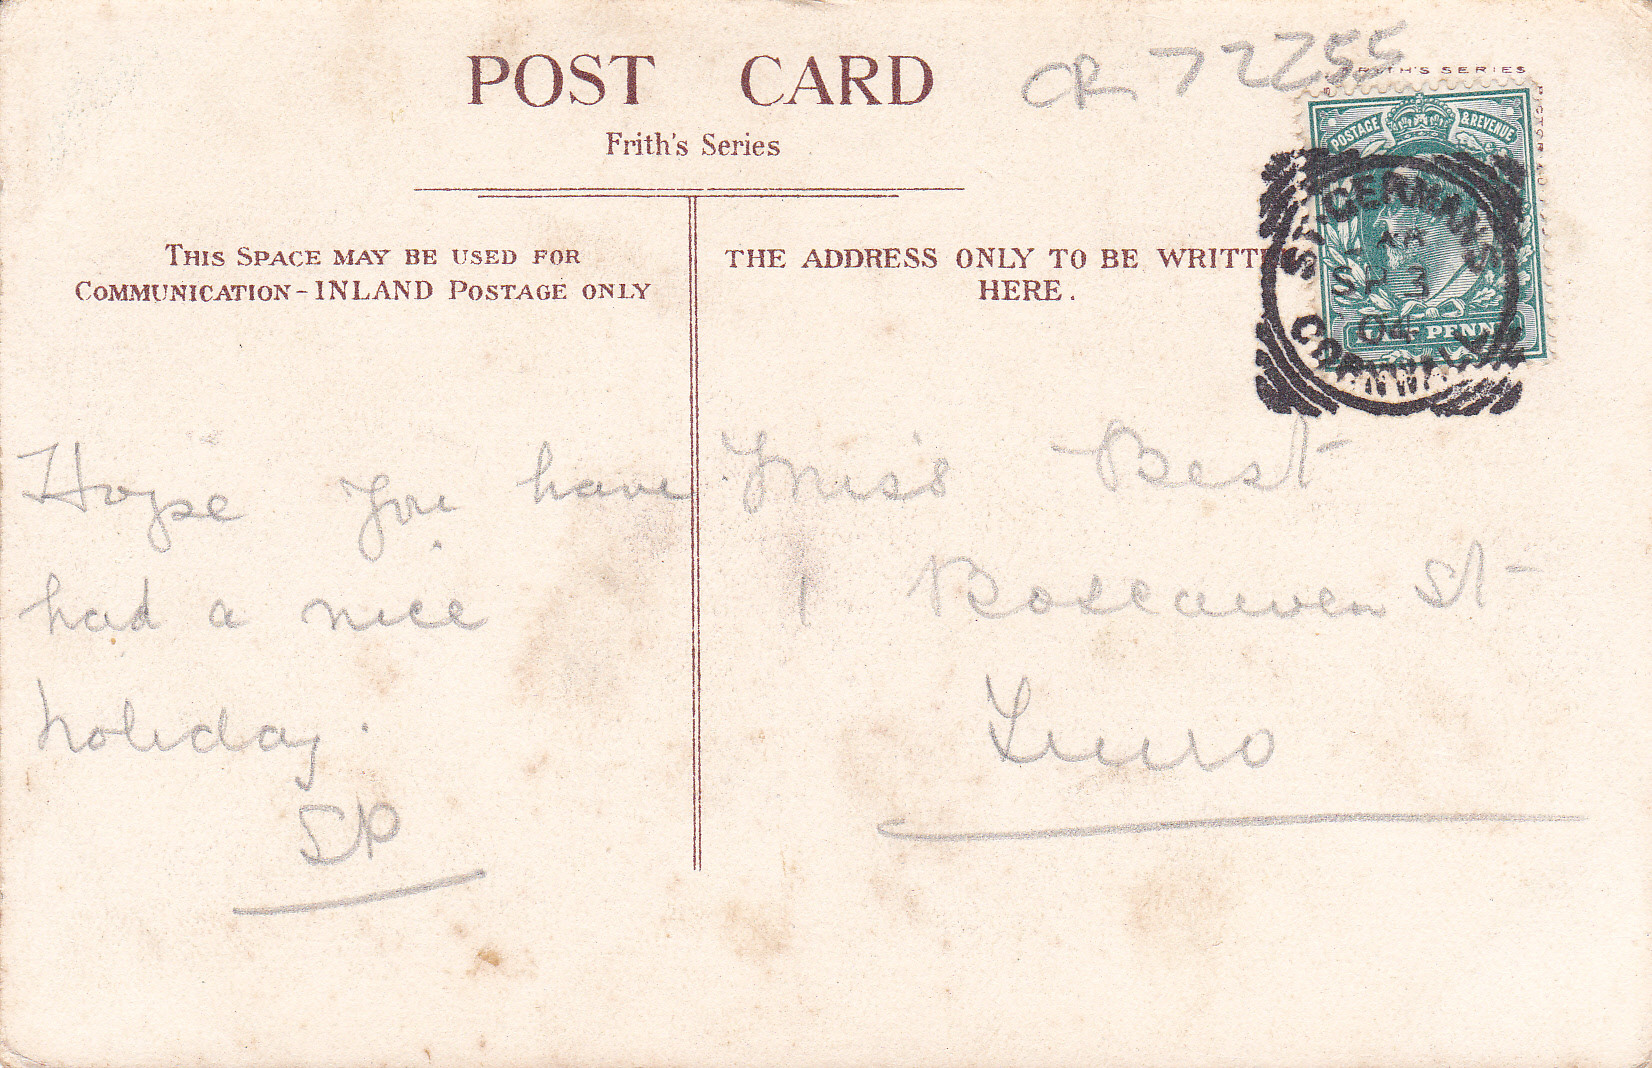 POST CARD
Frith's Series
CR 72255
FRITH'S SERIES
POSTAGE & REVENUE
HALF PENNY
ST. GERMANS
SP 3
04
CORNWALL
THIS SPACE MAY BE USED FOR
COMMUNICATION-INLAND POSTAGE ONLY
THE ADDRESS ONLY TO BE WRITT
HERE.
Hope you have
had a nice
holiday.
SP
Miss Best
1 Boscawen St
Truro